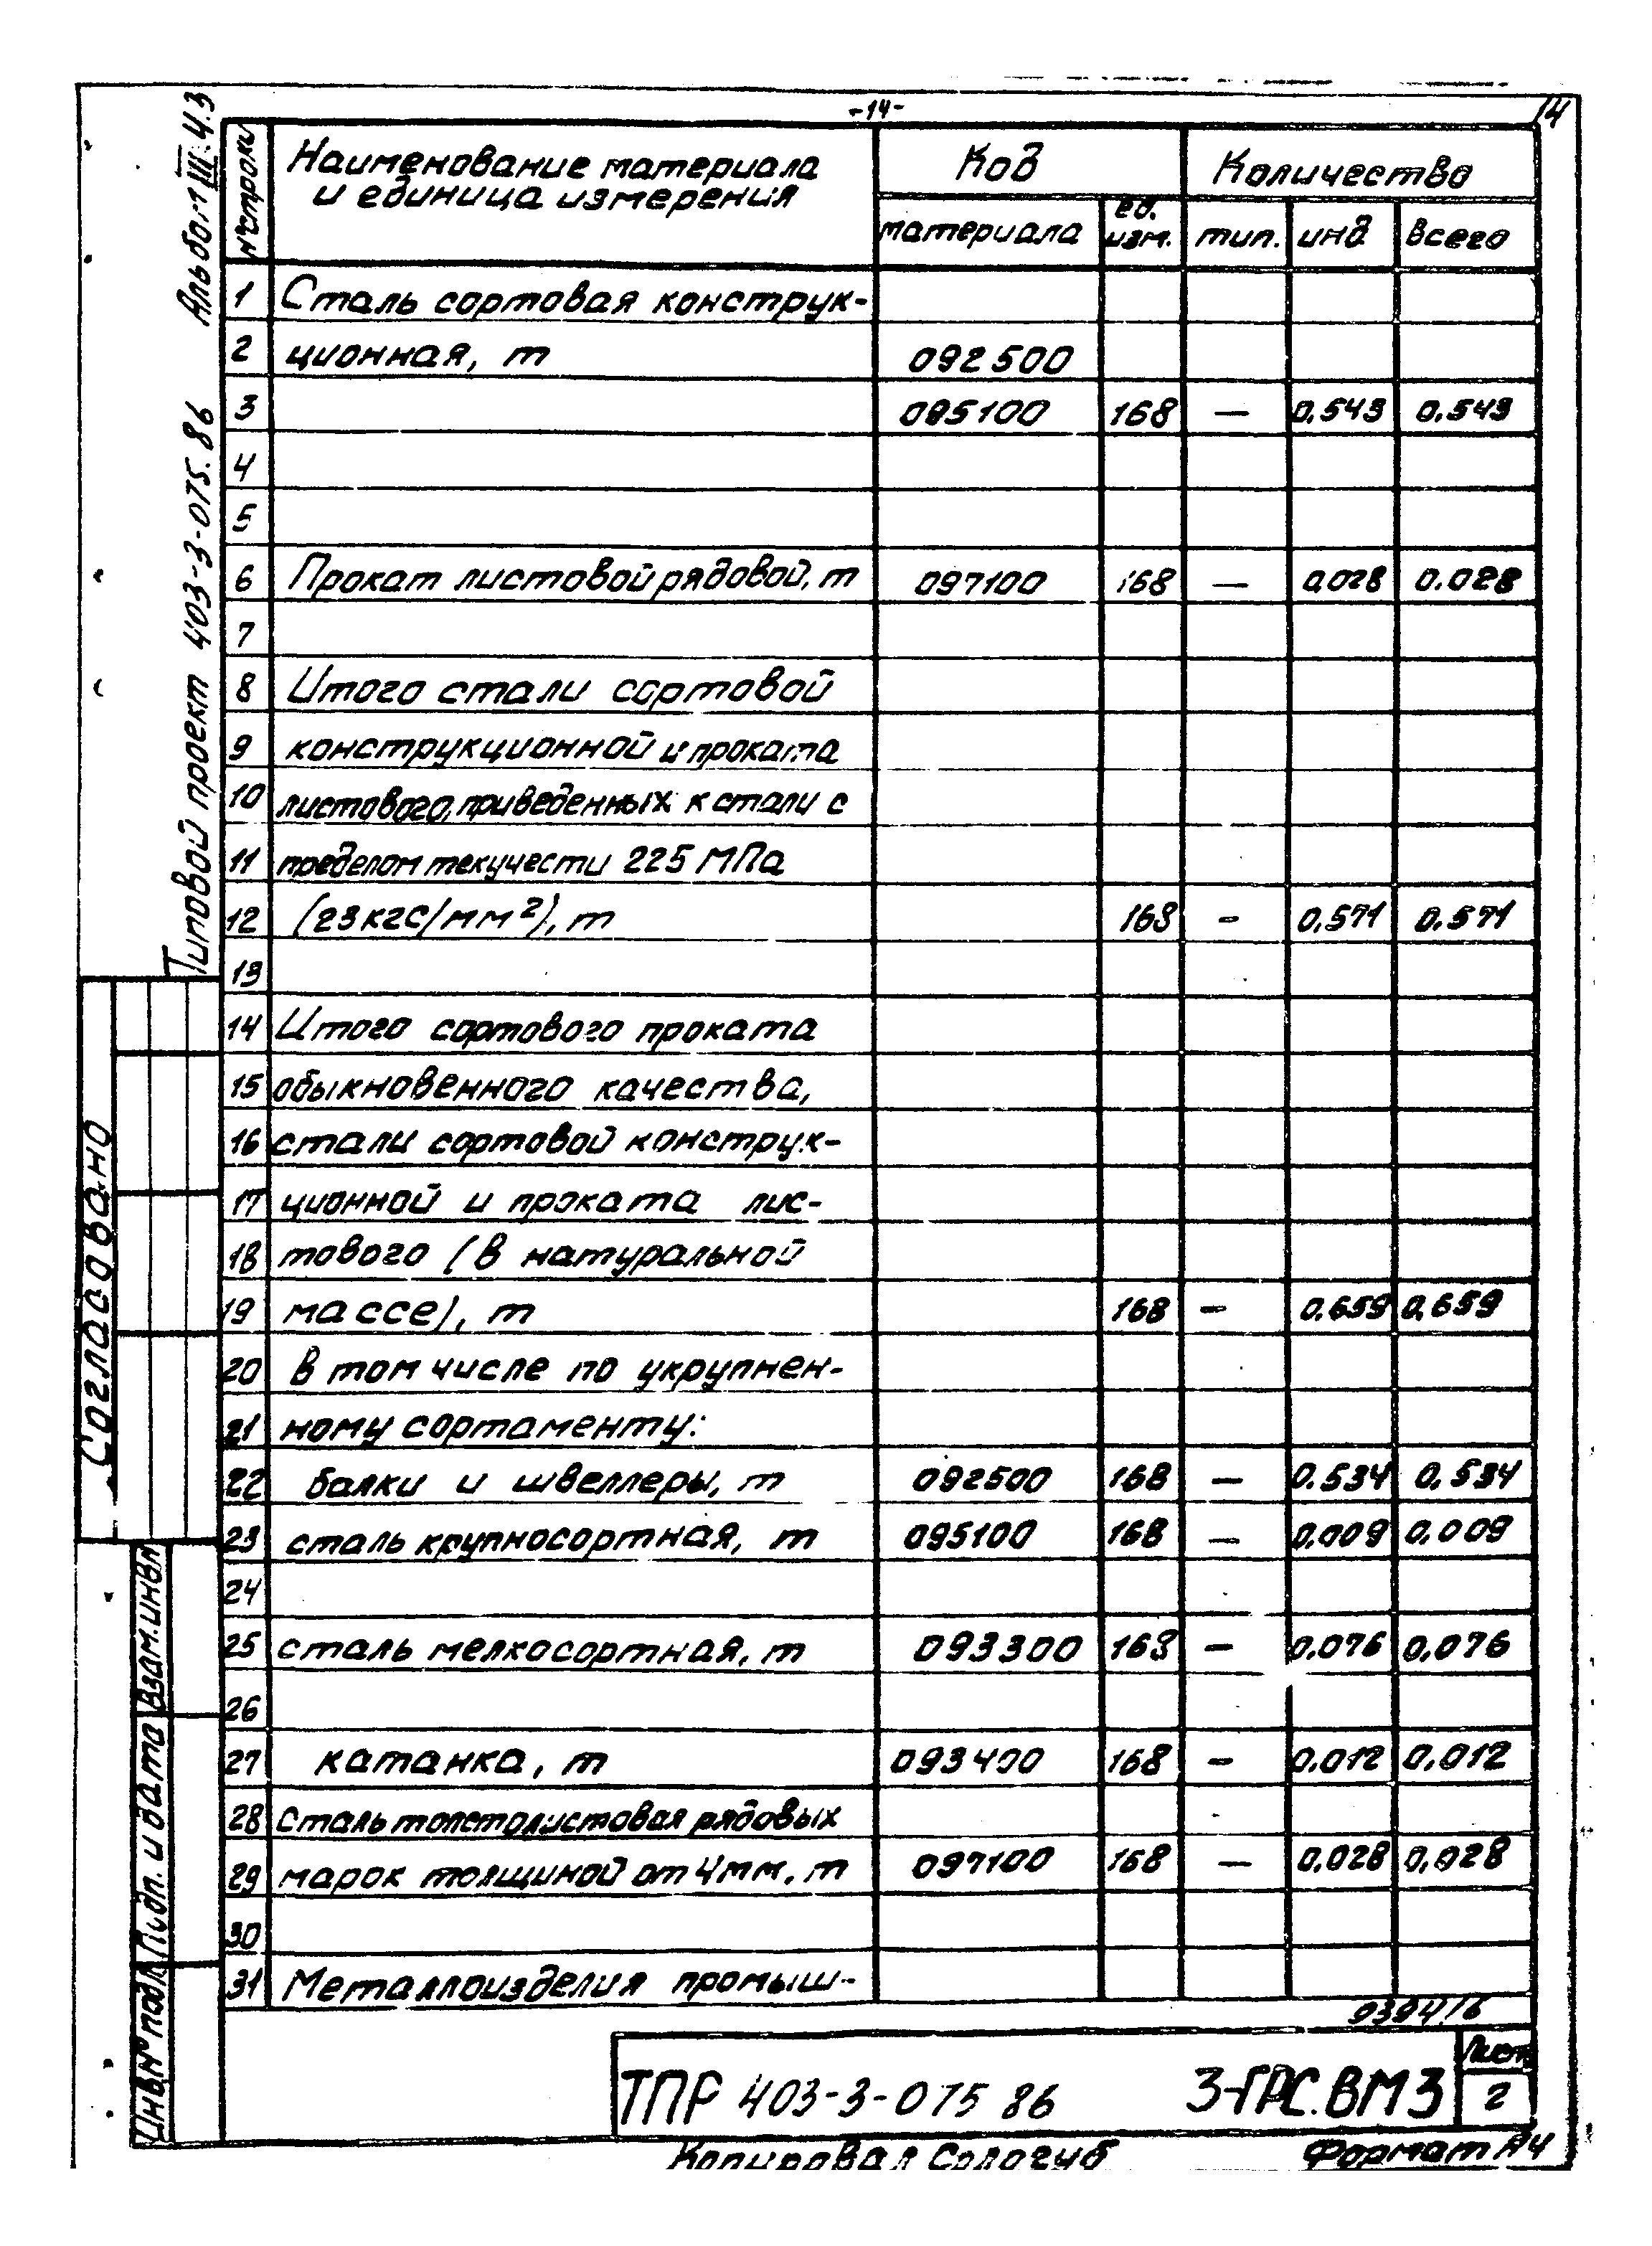 -14-
14
Альбом III.4.3
Типовой проект 403-3-075.86
№ строки
Наименование материала
и единица измерения
Код
Количество
материала
ед.
изм.
тип.
инд
всего
1 Сталь сортовая конструк-
2 ционная, т 092500
3 095100 168 — 0.543 0.543
4
5
6 Прокат листовой рядовой, т 097100 168 — 0.028 0.028
7
8 Итого стали сортовой
9 конструкционной и проката
10 листового, приведенных к стали с
11 пределом текучести 225 МПа
12 (23 кгс/мм²), т 168 - 0.571 0.571
13
14 Итого сортового проката
15 обыкновенного качества,
16 стали сортовой конструк-
17 ционной и проката лис-
18 тового (в натуральной
19 массе), т 168 — 0.659 0.659
20 в том числе по укрупнен-
21 ному сортаменту:
22 балки и швеллеры, т 092500 168 — 0.534 0.534
23 сталь крупносортная, т 095100 168 — 0.009 0.009
24
25 сталь мелкосортная, т 093300 168 — 0.076 0.076
26
27 катанка, т 093400 168 — 0.012 0.012
28 Сталь толстолистовая рядовых
29 марок толщиной от 4 мм, т 097100 168 — 0.028 0.028
30
31 Металлоизделия промыш-
Согласовано
Взам.инв.№
Подп. и дата
Инв.№ подл.
9394/6
ТПР 403-3-075 86 3-ГРС.ВМ3
Лист
2
Копировал Сологуб
Формат А4